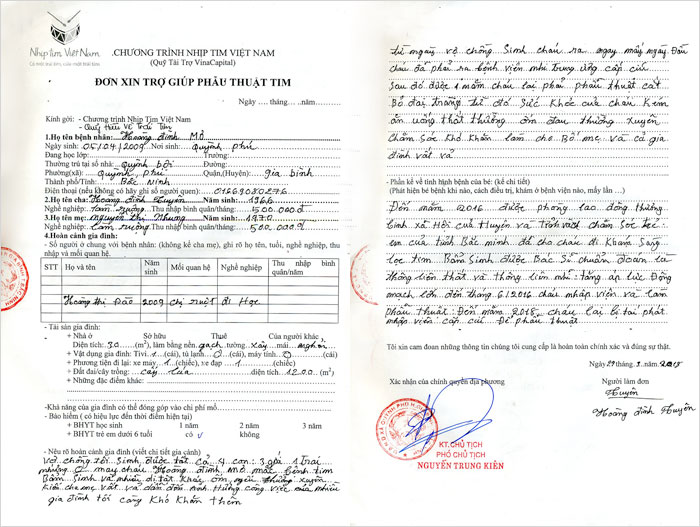 Nhịp Tim Việt Nam
Có một trái tim, cứu một mái tim
CHƯƠNG TRÌNH NHỊP TIM VIỆT NAM
(Quỹ Tài Trợ VinaCapital)
ĐƠN XIN TRỢ GIÚP PHẪU THUẬT TIM
Ngày …. tháng ….năm………
Kính gởi: - Chương trình Nhịp Tim Việt Nam
- Quỹ Hiểu Về Trái Tim
1.Họ tên bệnh nhân: Hoàng đình Mô
Ngày sinh: 05/04/2009 Nơi sinh: quỳnh phú
Đang học lớp: Trường:
Thường trú tại số nhà: quỳnh bội Đường:
Phường(xã): quỳnh phú Quận,(Huyện): gia bình
Thành phố/Tỉnh: Bắc Ninh
Điện thoại (nếu không có hãy ghi số người quen): 01669030276
2.Họ tên cha: Hoàng đình Huyên Năm sinh: 1966
Nghề nghiệp: làm ruộng Thu nhập bình quân/tháng: 500.000đ
3.Họ tên mẹ: nguyễn thị Nhung Năm sinh: 1970
Nghề nghiệp: làm ruộng Thu nhập bình quân/tháng: 500.000đ
4.Hoàn cảnh gia đình:
- Số người ở chung với bệnh nhân: (không kể cha mẹ), ghi rõ họ tên, tuổi, nghề nghiệp, thu nhập và mối quan hệ.
STT Họ và tên Năm sinh Mối quan hệ Nghề nghiệp Thu nhập bình quân/năm
Hoàng thị Đào 2009 chị ruột đi Học
- Tài sản gia đình:
+ Nhà ở Sở hữu Thuê Của người khác
Diện tích: 30 (m²), làm bằng nền gạch tường xây mái
+ Vật dụng gia đình: Tivi 1 (cái), tủ lạnh 0 (cái), máy tính 0 (cái)
+ Phương tiện đi lại: xe máy 1 (chiếc), xe đạp 1 (chiếc)
+ Đất đai/cây trồng: cây lúa diện tích 1200 (m²)
+ Những đặc điểm khác:
-Khả năng của gia đình có thể đóng góp vào chi phí mổ
- Bảo hiểm ( có hiệu lực đến thời điểm hiện tại)
+ BHYT học sinh 1 năm 2 năm 3 năm
+ BHYT trẻ em dưới 6 tuổi có v không
- Nêu rõ hoàn cảnh gia đình (viết chi tiết gia cảnh)
vợ chồng tôi sinh được tất cả 4 con: 3 gái 1 trai
nhưng may cháu Hoàng đình mô mắc bệnh tim
Bẩm sinh và nhiều dị tật khác ốm yếu thường xuyên
khiến cha mẹ vất vả dẫn đến ảnh hưởng công việc nhiều
gia đình tôi càng khó khăn thêm
từ ngày vợ chồng sinh cháu ra ngay mấy ngày đầu
cháu đã phải ra bệnh viện nhi trung ương cấp cứu
sau đó được 1 năm cháu lại phải phẫu thuật cắt
Bỏ đại tràng từ đó sức khỏe của cháu kém
ăn uống thất thường ốm đau thường xuyên
chăm sóc khó khăn làm cho Bố mẹ và cả gia
đình vất vả
- Phần kể về tình hình bệnh của bé: (kể chi tiết)
(Phát hiện bé bệnh khi nào, cách điều trị, khám ở bệnh viện nào, mấy lần …)
Đến năm 2016 được phòng lao động thương
binh xã Hội của Huyện và chăm sóc trẻ
em của tỉnh Bắc ninh đã cho cháu đi khám sàng
lọc tim Bẩm sinh được Bác sĩ chuẩn đoán là
thông liên thất và thông liên nhĩ: tăng áp lực động
mạch lớn đến tháng 6/2016 cháu nhập viện và làm
phẫu thuật: đến năm 2018 cháu lại bị tái phát
nhập viện cấp cứu để phẫu thuật
Tôi xin cam đoan những thông tin chúng tôi cung cấp là hoàn toàn chính xác và đúng sự thật.
Ngày 29 tháng 3 năm 2018
Xác nhận của chính quyền địa phương Người làm đơn
Huyên
Hoàng đình Huyên
KT.CHỦ TỊCH
PHÓ CHỦ TỊCH
NGUYỄN TRUNG KIÊN